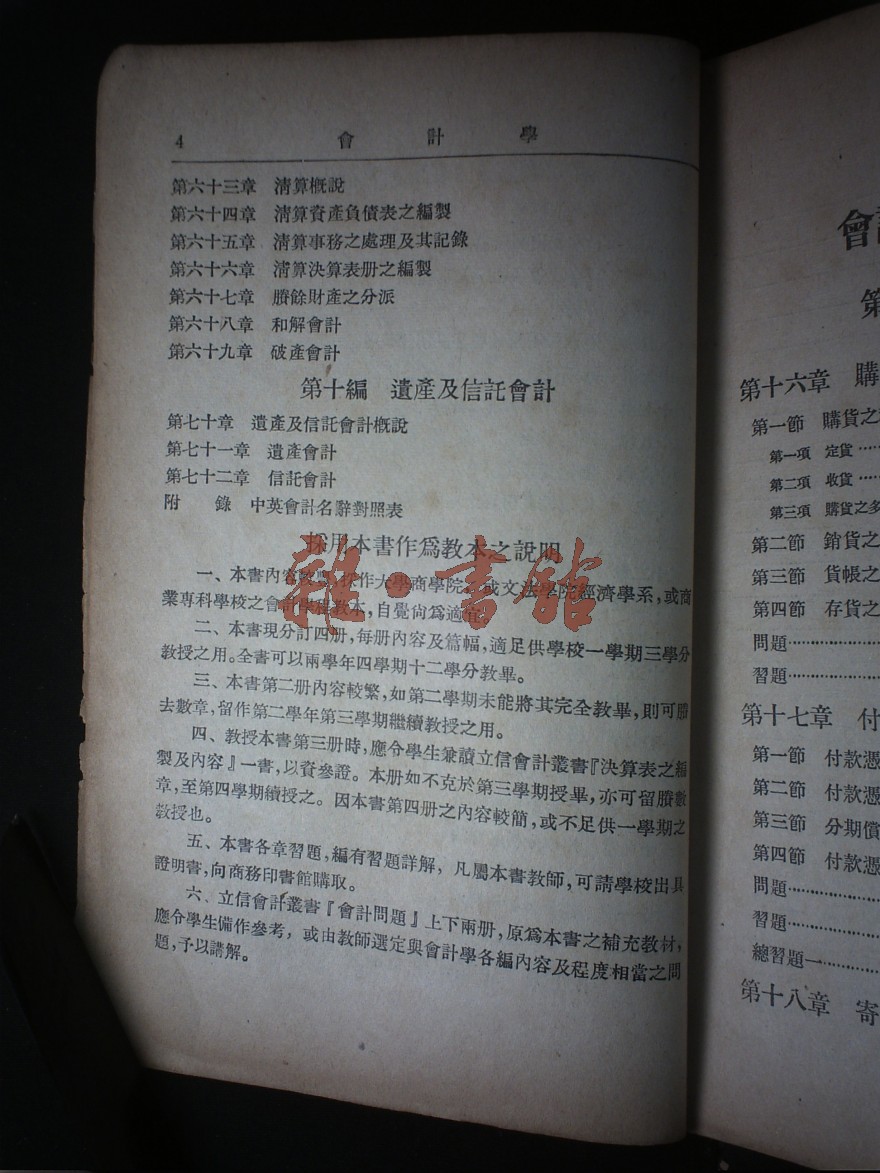 4 會計學
第六十三章 淸算概說
第六十四章 淸算資產負債表之編製
第六十五章 淸算事務之處理及其記錄
第六十六章 淸算決算表册之編製
第六十七章 賸餘財產之分派
第六十八章 和解會計
第六十九章 破產會計
第十編 遺產及信託會計
第七十章 遺產及信託會計概說
第七十一章 遺產會計
第七十二章 信託會計
附錄 中英會計名辭對照表
採用本書作爲教本之說明
一、本書內容較豐,採作大學商學院,或文法學院經濟學系,或商
業專科學校之會計學程教本,自覺尙爲適宜。
二、本書現分訂四册,每册內容及篇幅,適足供學校一學期三學分
教授之用。全書可以兩學年四學期十二學分教畢。
三、本書第二册內容較繁,如第二學期未能將其完全教畢,則可賸
去數章,留作第二學年第三學期繼續教授之用。
四、教授本書第三册時,應令學生兼讀立信會計叢書『決算表之編
製及內容』一書,以資參證。本册如不克於第三學期授畢,亦可留賸數
章,至第四學期續授之。因本書第四册之內容較簡,或不足供一學期之
教授也。
五、本書各章習題,編有習題詳解,凡屬本書教師,可請學校出具
證明書,向商務印書館購取。
六、立信會計叢書『會計問題』上下兩册,原爲本書之補充教材,
應令學生備作參考,或由教師選定與會計學各編內容及程度相當之問
題,予以講解。
雜·書館
會
第
第十六章 購
第一節 購貨之
第一項 定貨
第二項 收貨
第三項 購貨之多
第二節 銷貨之
第三節 貨帳之
第四節 存貨之
問題
習題
第十七章 付
第一節 付款憑
第二節 付款憑
第三節 分期償
第四節 付款憑
問題
習題
總習題一
第十八章 寄